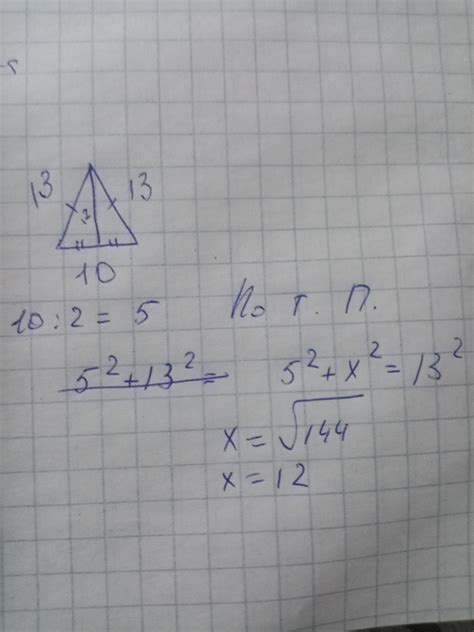 13 ? 13
10
10 : 2 = 5 По т. П.
5² + 13² = 5² + x² = 13²
x = √144
x = 12